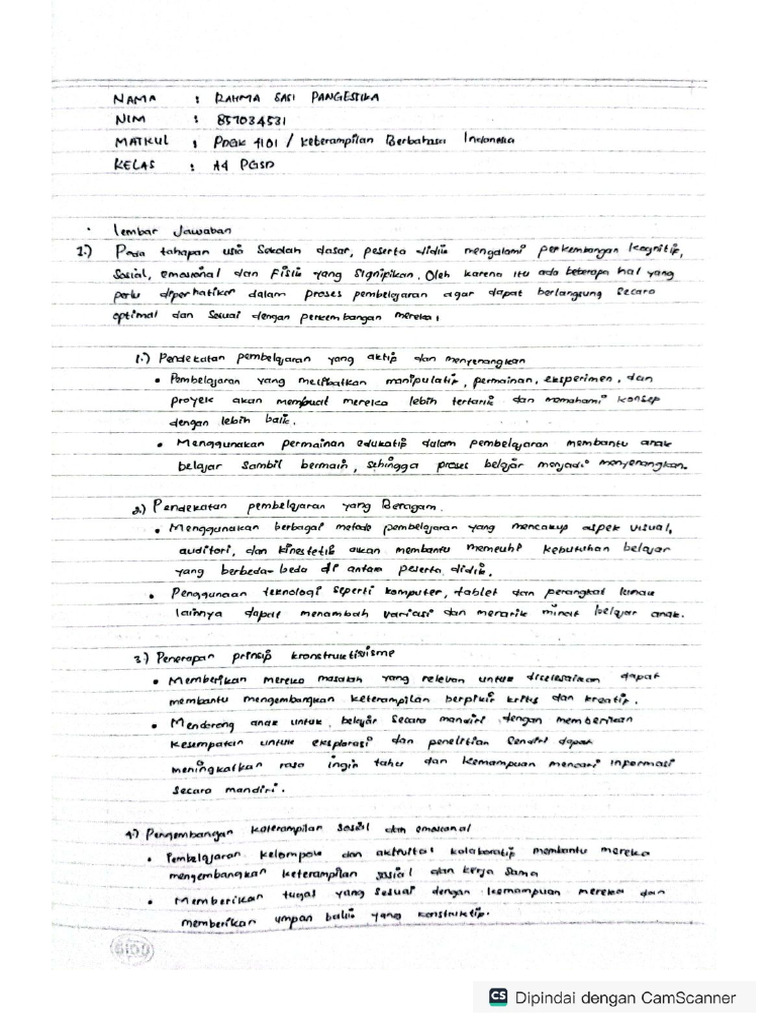 NAMA : RAHMA SARI PANGESTIKA
NIM : 857034531
MATKUL : PDGK 4101 / Keterampilan Berbahasa Indonesia
KELAS : A4 PGSD
• Lembar Jawaban
1.) Pada tahapan usia Sekolah dasar, peserta didik mengalami perkembangan Kognitif,
Sosial, emosional dan Fisik yang Signifikan. Oleh karena itu ada beberapa hal yang
perlu diperhatikan dalam proses pembelajaran agar dapat berlangsung Secara
optimal dan Sesuai dengan perkembangan mereka,
1.) Pendekatan pembelajaran yang aktif dan menyenangkan
• Pembelajaran yang melibatkan manipulatif, permainan, eksperimen, dan
proyek akan membuat mereka lebih tertarik dan memahami konsep
dengan lebih baik.
• Menggunakan permainan edukatif dalam pembelajaran membantu anak
belajar sambil bermain, sehingga proses belajar menjadi menyenangkan.
2.) Pendekatan pembelajaran yang Beragam.
• Menggunakan berbagai metode pembelajaran yang mencakup aspek visual,
auditori, dan kinestetik akan membantu memeuhi kebutuhan belajar
yang berbeda-beda di antara peserta didik.
• Penggunaan teknologi seperti komputer, tablet dan perangkat lunak
lainnya dapat menambah variasi dan menarik minat belajar anak.
3.) Penerapan prinsip kronstruktivisme
• Memberikan mereka masalah yang relevan untuk diselesaikan dapat
membantu mengembangkan keterampilan berpikir kritis dan kreatif.
• Mendorong anak untuk belajar Secara mandiri dengan memberikan
kesempatan untuk eksplorasi dan penelitian Sendiri dapat
meningkatkan rasa ingin tahu dan kemampuan mencari informasi
Secara mandiri.
4.) Pengembangan keterampilan sosial dan emosional
• Pembelajaran kelompok dan aktivitas kolaboratif membantu mereka
mengembangkan keterampilan sosial dan kerja sama
• Memberikan tugas yang sesuai dengan kemampuan mereka dan
memberikan umpan balik yang konstruktif.
CS Dipindai dengan CamScanner